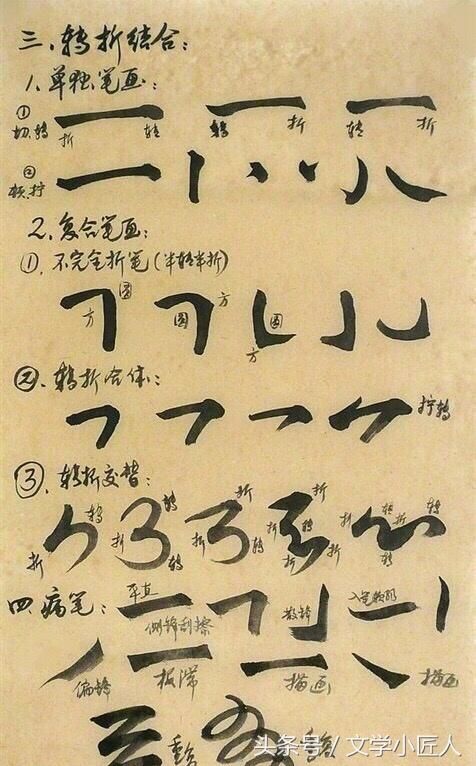 三、转折结合:
1、单独笔画:
① 切、转 折 转 转 折 转 折
② 顿、拧
2、复合笔画:
①、不完全折笔(半转半折)
方 圆 圆 方 圆 方
②、转折合体:
拧转
③、转折交替:
折 转 折 转 转 折 折 转 折 折 转 折 折 转 折 转 转
四、病笔: 平直
侧锋刮擦 散锋
偏锋 板滞 描画 描画
头条号 / 文学小匠人